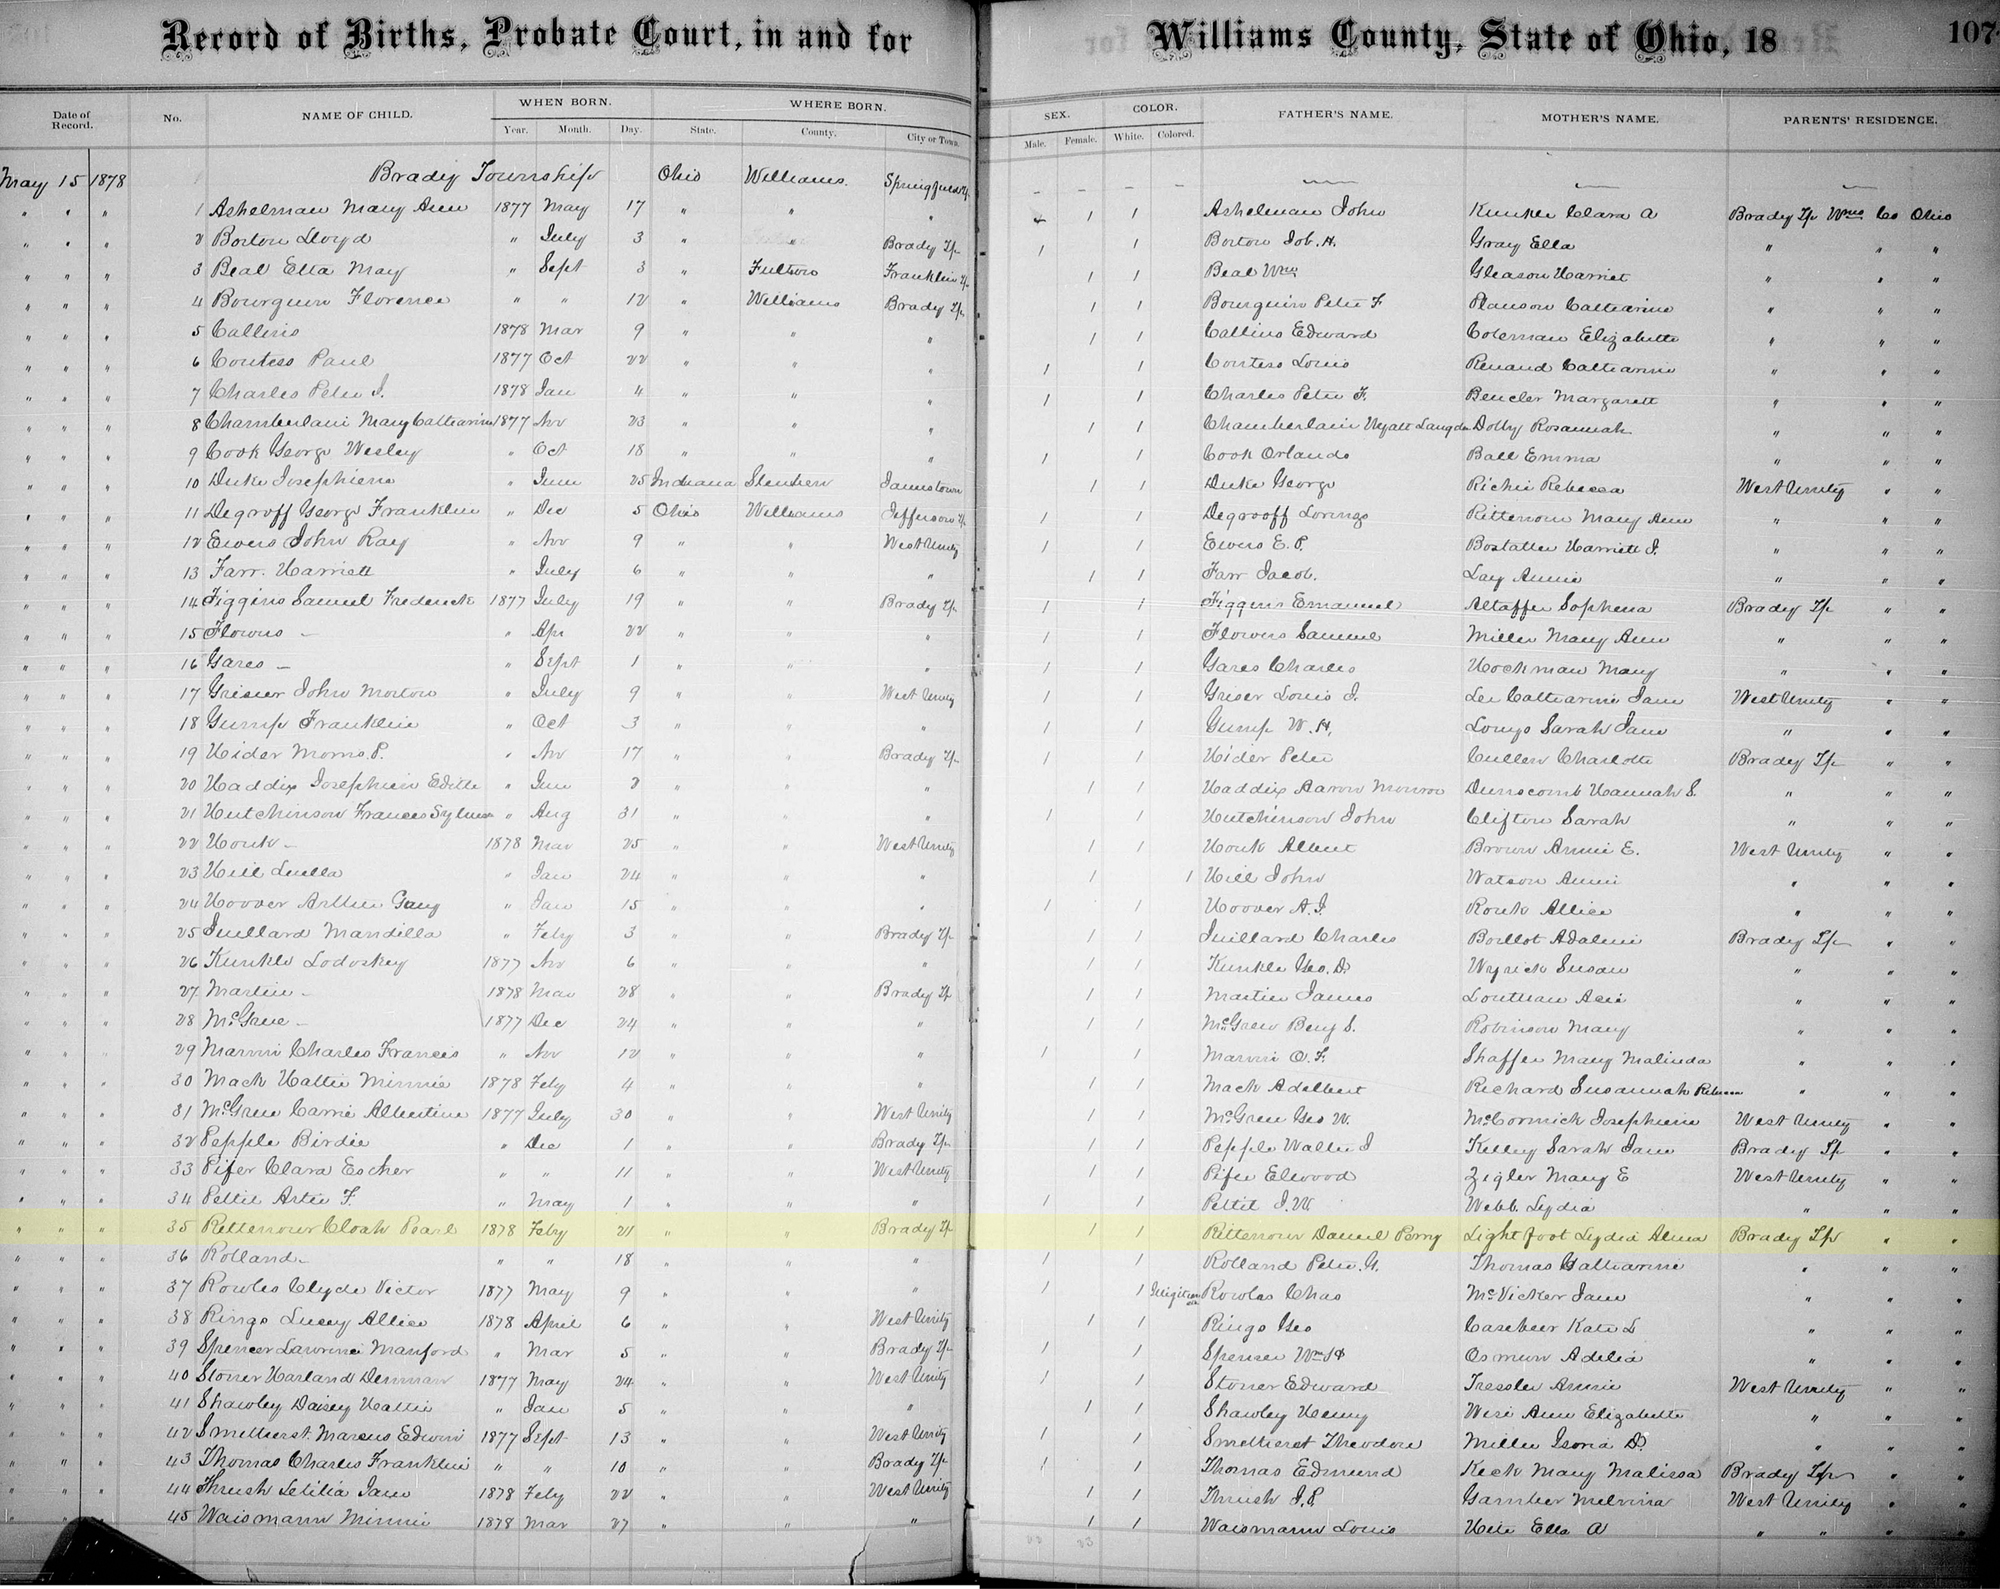 Record of Births, Probate Court, in and for Williams County, State of Ohio, 18 107
Date of Record. No. NAME OF CHILD. WHEN BORN. WHERE BORN. SEX. COLOR. FATHER'S NAME. MOTHER'S NAME. PARENTS' RESIDENCE.
Year. Month. Day. State. County. City or Town. Male. Female. White. Colored.
May 15 1878 Brady Township Ohio Williams Springfield Tp.
" " " 1 Ashelman Mary Ann 1877 May 17 " " " 1 1 Ashelman John Kunkle Clara A Brady Tp Wms Co Ohio
" " " 2 Borton Lloyd " July 3 " " Brady Tp 1 1 Borton Job. H. Gray Ella " " "
" " " 3 Beal Etta May " Sept 3 " Fulton Franklin Tp 1 1 Beal Wm Gleason Harriet " " "
" " " 4 Bourquin Florence " " 12 " Williams Brady Tp 1 1 Bourquin Peter F Plauson Catharine " " "
" " " 5 Callins 1878 Mar 9 " " " 1 1 Callins Edward Coleman Elizabeth " " "
" " " 6 Contess Paul 1877 Oct 22 " " " 1 1 Contess Louis Renaud Catharine " " "
" " " 7 Charles Peter J. 1878 Jan 4 " " " 1 1 Charles Peter F. Beucler Margarett " " "
" " " 8 Chamberlain Mary Catharine 1877 Nov 23 " " " 1 1 Chamberlain Wyatt Langdon Dolby Rosannah " " "
" " " 9 Cook George Wesley " Oct 18 " " " 1 1 Cook Orlando Ball Emma " " "
" " " 10 Duke Josephiene " June 25 Indiana Steuben Jamestown 1 1 Duke George Richie Rebecca West Unity " "
" " " 11 Degroff George Franklin " Dec 5 Ohio Williams Jefferson Tp 1 1 Degrooff Lorings Rittenour Mary Ann " " "
" " " 12 Ewers John Ray " Nov 9 " " West Unity 1 1 Ewers E. P. Bostatter Harriett J. " " "
" " " 13 Farr. Harriett " July 6 " " " 1 1 Farr Jacob. Lay Annie " " "
" " " 14 Figgins Samuel Frederick 1877 July 19 " " Brady Tp 1 1 Figgins Emanuel Altaffer Sophena Brady Tp " "
" " " 15 Flowers - " Apr 22 " " " 1 1 Flowers Samuel Miller Mary Ann " " "
" " " 16 Gares - " Sept 1 " " " 1 1 Gares Charles Hockman Mary " " "
" " " 17 Grisier John Morton " July 9 " " West Unity 1 1 Griser Louis J. Lee Catharine Jane West Unity " "
" " " 18 Gump Franklin " Oct 3 " " " 1 1 Gump W. H. Longs Sarah Jane " " "
" " " 19 Hider Morris P. " Nov 17 " " Brady Tp 1 1 Hider Peter Cullen Charlotte Brady Tp " "
" " " 20 Haddix Josephien Edith " June 2 " " " 1 1 Haddix Aaron Monroe Dunscomb Hannah S. " " "
" " " 21 Hutchinson Frances " Aug 31 " " " 1 1 Hutchinson John Clifton Sarah " " "
" " " 22 Houk - 1878 Mar 25 " " West Unity 1 1 Houk Albert Brown Annie E. West Unity " "
" " " 23 Hill Luella " Jan 24 " " " 1 1 Hill John Watson Anni " " "
" " " 24 Hoover Arthur Gary " Jan 15 " " " 1 1 Hoover A. J. Rouk Allice " " "
" " " 25 Juillard Mandilla " Feby 3 " " Brady Tp 1 1 Juillard Charles Boillot Adaline Brady Tp " "
" " " 26 Kunkle Lodoskey 1877 Nov 6 " " " 1 1 Kunkle Geo. D. Wyrick Susan " " "
" " " 27 Martin - 1878 Mar 28 " " Brady Tp 1 1 Martin James Louthan " " "
" " " 28 McGrew - 1877 Dec 24 " " " 1 1 McGrew Benj S. Robinson Mary " " "
" " " 29 Marvin Charles Francis " Nov 12 " " " 1 1 Marvin O. F. Shaffer Mary Malinda " " "
" " " 30 Mack Hattie Minnie 1878 Feby 4 " " " 1 1 Mack Adelbert Richard Susannah Rebecca " " "
" " " 31 McGrew Carrie Albertine 1877 July 30 " " West Unity 1 1 McGrew Geo W. McCormick Josephiene West Unity " "
" " " 32 Pepple Birdie " Dec 1 " " Brady Tp 1 1 Pepple Walter J Kelley Sarah Jane Brady Tp " "
" " " 33 Pifer Clara Escher " " 11 " " West Unity 1 1 Pifer Elwood Zigler Mary E West Unity " "
" " " 34 Pettit Arter F. " May 1 " " " 1 1 Pettit J. W Webb Lydia " " "
" " " 35 Rittenour Cloah Pearl 1878 Feby 21 " " Brady Tp 1 1 Rittenour Daniel Perry Lightfoot Lydia Alma Brady Tp " "
" " " 36 Rolland - " " 18 " " " 1 1 Rolland Peter. G. Thomas Catharine " " "
" " " 37 Rowles Clyde Victor 1877 May 9 " " " 1 1 Rowles Chas McVicker Jane " " "
" " " 38 Ringo Lucey Allice 1878 April 6 " " West Unity 1 1 Ringo Geo Casebeer Kate L " " "
" " " 39 Spencer Lawrence Manford " Mar 5 " " Brady Tp 1 1 Spenser Wm H Osmun Adelia " " "
" " " 40 Stoner Harland Denman 1877 May 24 " " West Unity 1 1 Stoner Edward Tressler Annie West Unity " "
" " " 41 Shawley Daisey Hattie " Jan 5 " " " 1 1 Shawley Henry Wise Ann Elizabeth " " "
" " " 42 Smetherst Marcus Edwin 1877 Sept 13 " " West Unity 1 1 Smetherst Theodore Miller Isoria D. " " "
" " " 43 Thomas Charles Franklin " " 10 " " Brady Tp 1 1 Thomas Edmund Keck Mary Malissa Brady Tp " "
" " " 44 Thrush Letitia Jane 1878 Feby 22 " " West Unity 1 1 Thrush J. P. Gamber Melvina West Unity " "
" " " 45 Waismann Minnie 1878 Mar 27 " " " 1 1 Waismann Louis Hite Ella A " " "
22 23